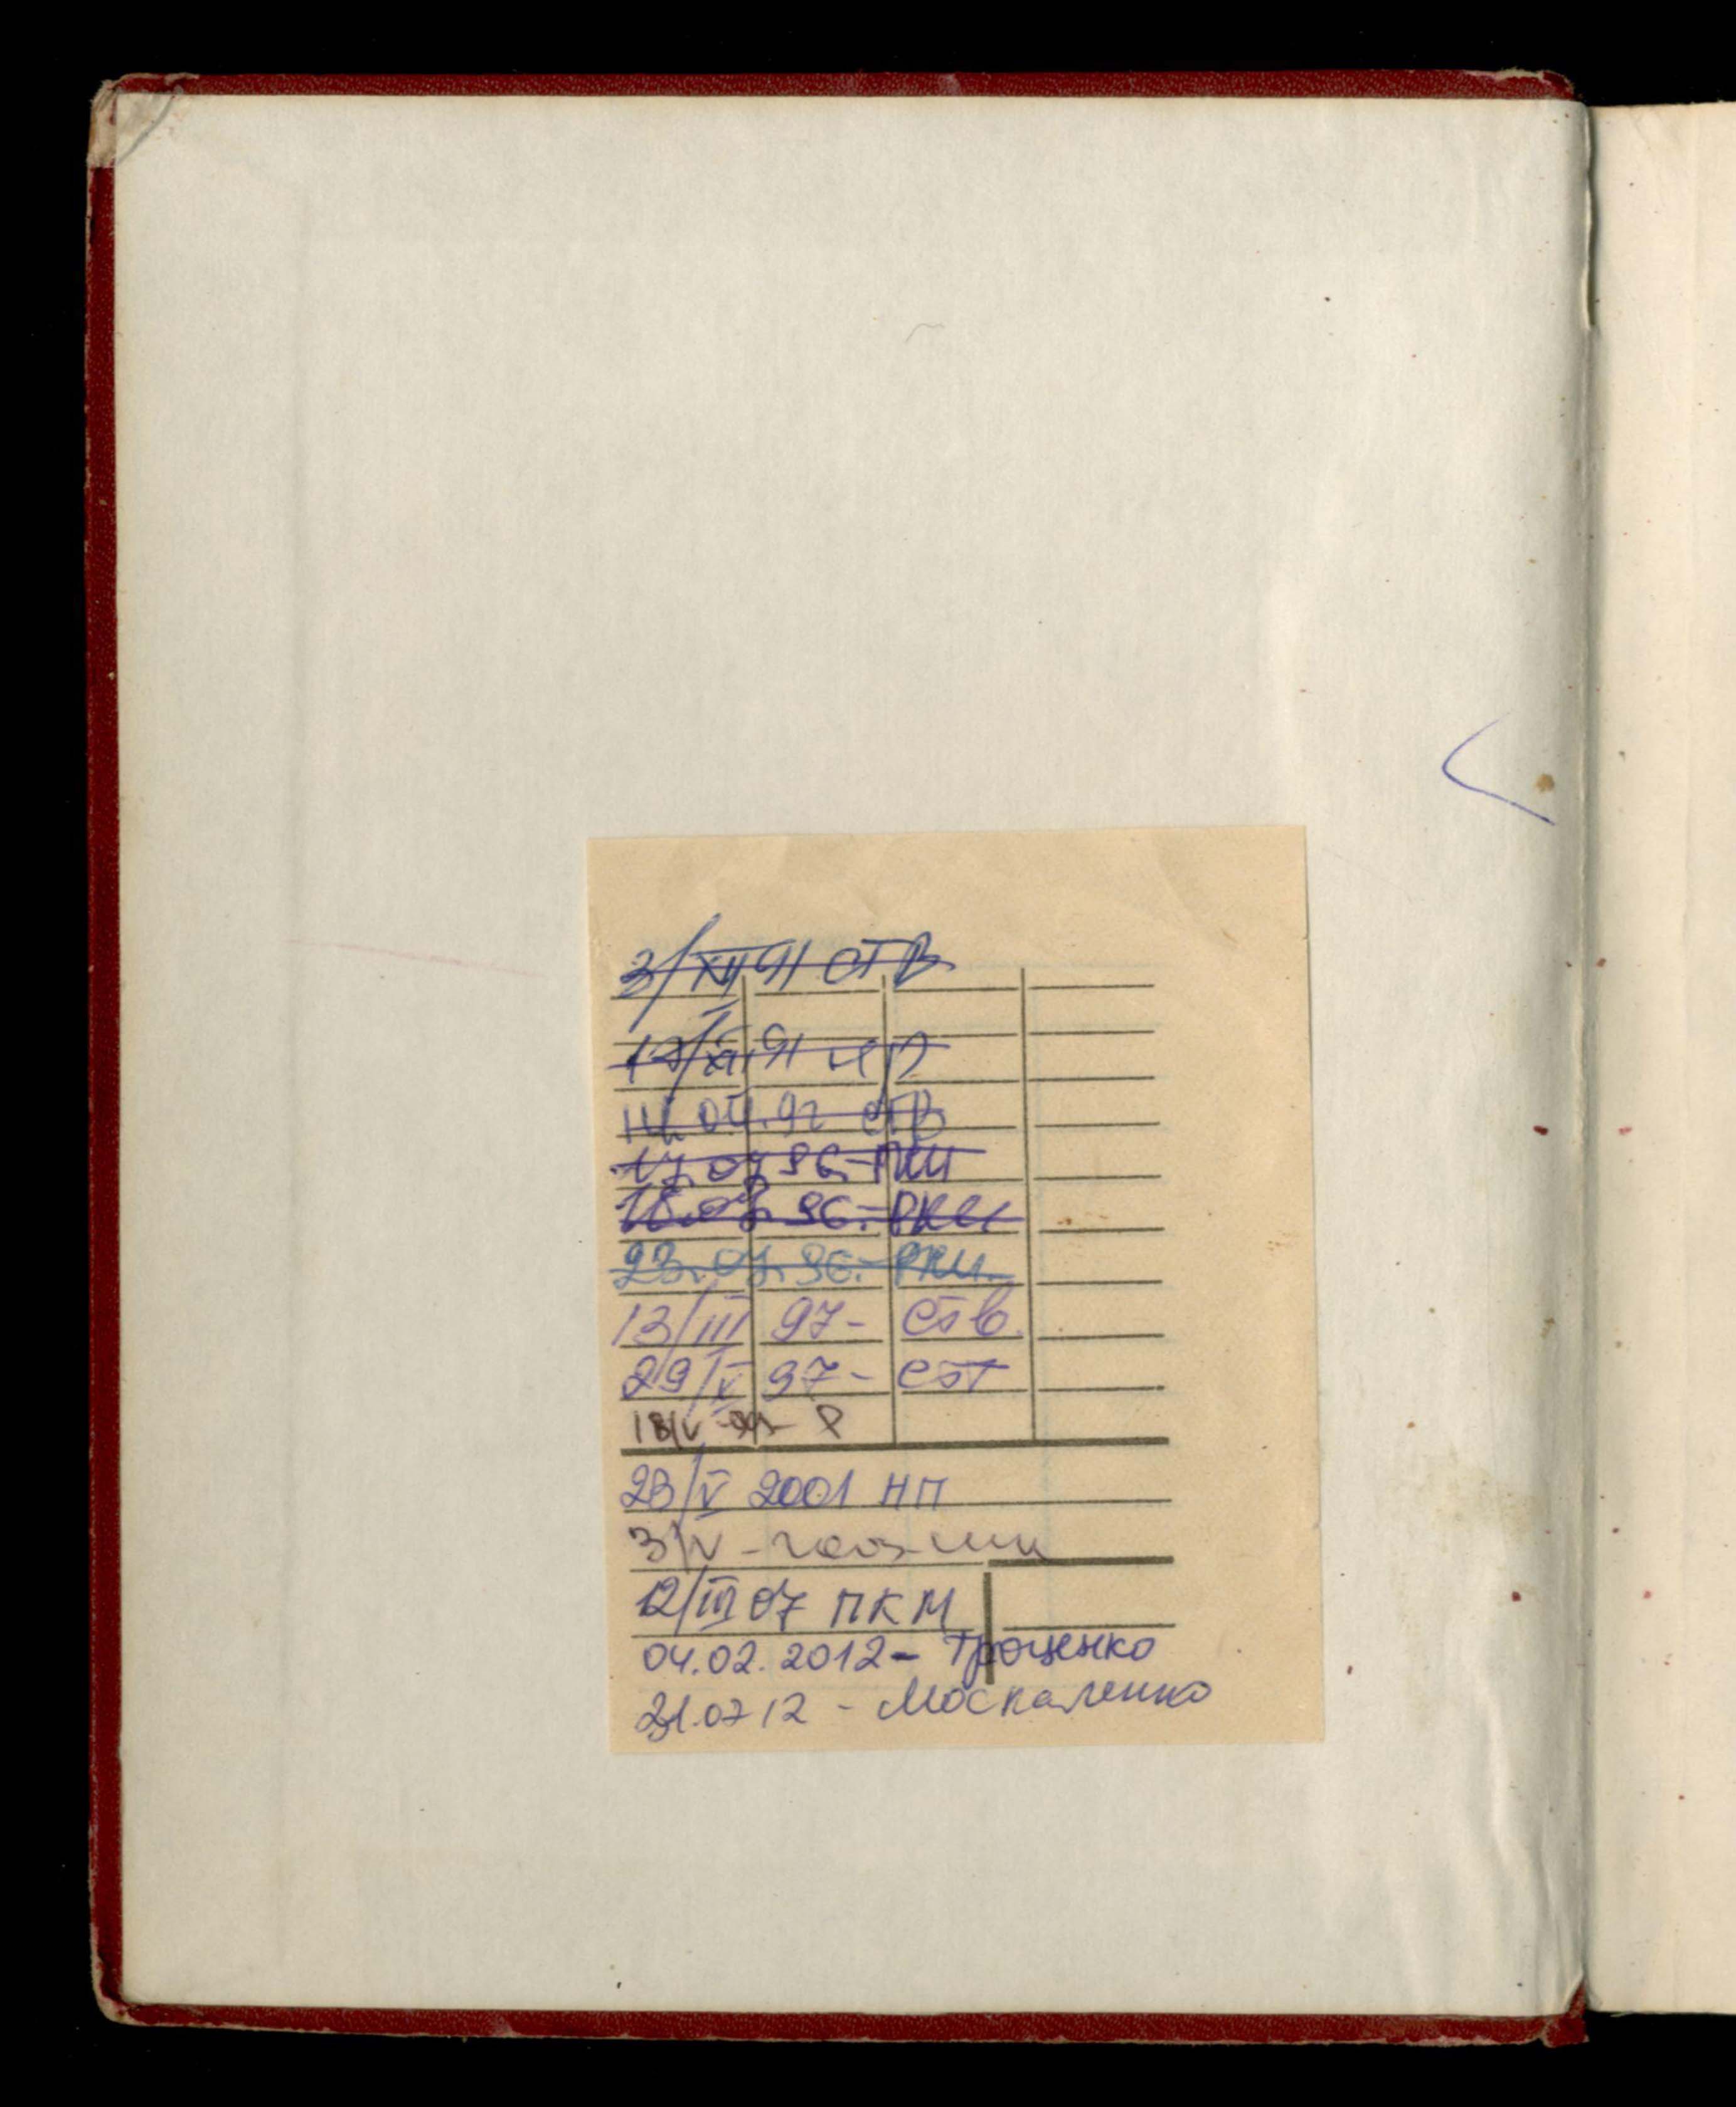 3/XII 91 СТВ
17/XII 91 ЧП
14.04.92 СТВ
17.07.96.-РКИ
18.07.96.-РКИ
23.07.96.-РКИ.
13/III 97- СТВ.
29/V 97- СТ
18/V
23/V 2001 НП
3/V - 2003
12/III 07 ПКМ
04.02.2012- Троценко
21.07 12 - Москаленко